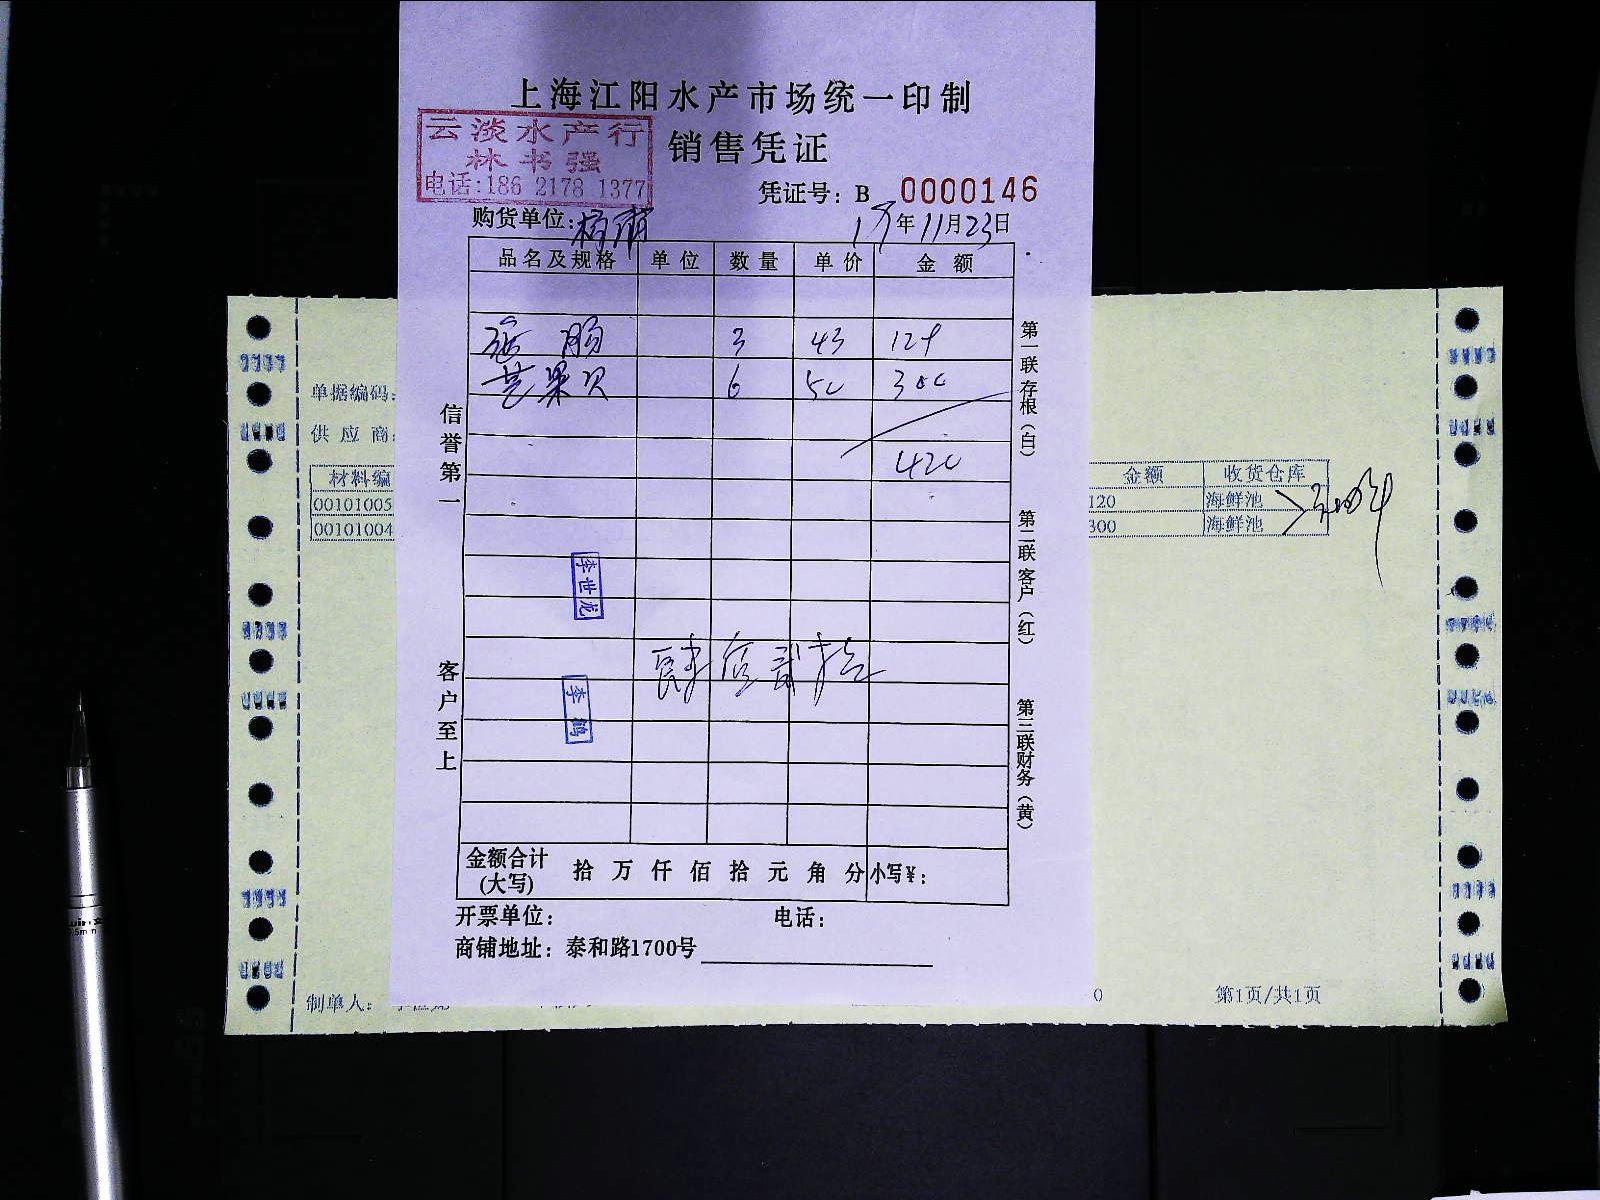 上海江阳水产市场统一印制
销售凭证
云淡水产行
林书强
电话:186 2178 1377
凭证号: B 0000146
购货单位:
年11月23日
品名及规格 单位 数量 单价 金额
肠 3 43 129
芒果贝 6 50 300
420
肆佰贰拾
李世龙
李鹤
信誉第一
客户至上
第一联存根(白)
第二联客户(红)
第三联财务(黄)
金额合计(大写) 拾 万 仟 佰 拾 元 角 分 小写¥:
开票单位: 电话:
商铺地址: 泰和路1700号
单据编码:
供应商:
材料编
00101005
00101004
金额 收货仓库
120 海鲜池
300 海鲜池
制单人:
0
第1页/共1页